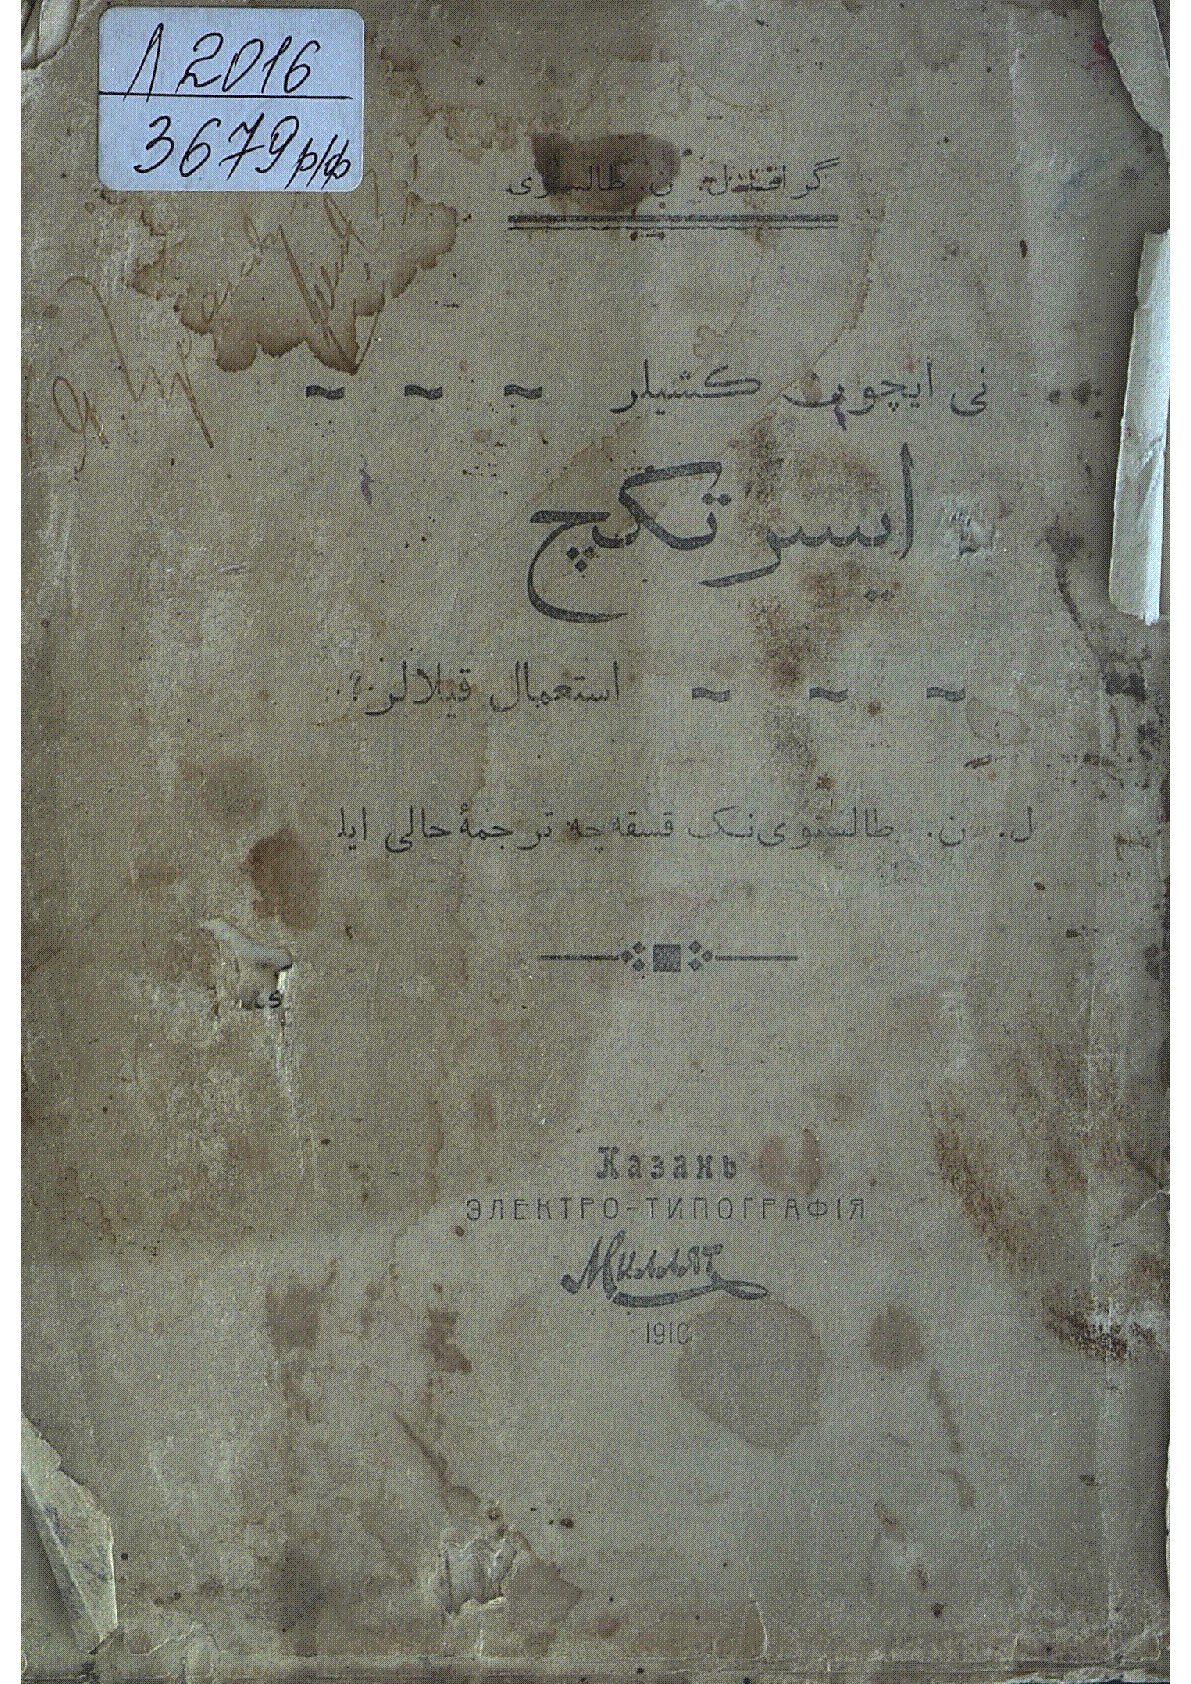 Л 2016
3679 р/ф
گراف ل. ن. طالستوی
نی ایچون کشیلر ~ ~ ~
ایسرتکچ
~ ~ ~ استعمال قیلالر؟
ل. ن. طالستوی نک قسقه چه ترجمهٔ حالی ایله
Казань
ЭЛЕКТРО-ТИПОГРАФІЯ
1910